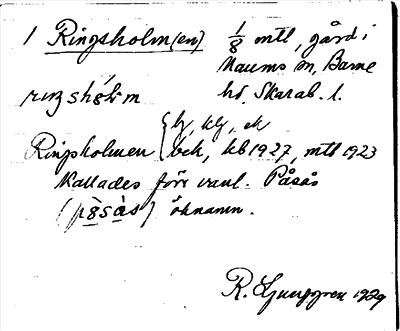 1 Ringsholm(en) 1/8 mtl, gård i
Naums sn, Barne
hd, Skarab. l.
Ringsholmen { lj, klj, ek
bek, kb 1927, mtl 1923
Kallades förr vanl. Påsås
öknamn.
R. Ljunggren 1929